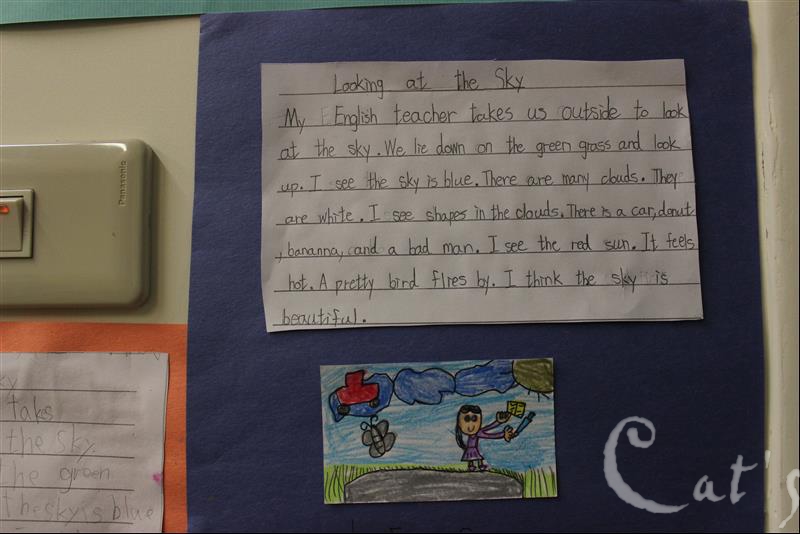 Looking at the Sky
My English teacher takes us outside to look
at the sky. We lie down on the green grass and look
up. I see the sky is blue. There are many clouds. They
are white. I see shapes in the clouds. There is a car, donut
, bananna, and a bad man. I see the red sun. It feels
hot. A pretty bird flies by. I think the sky is
beautiful.
Panasonic
takes
the sky
the green
the sky is blue
Cat's